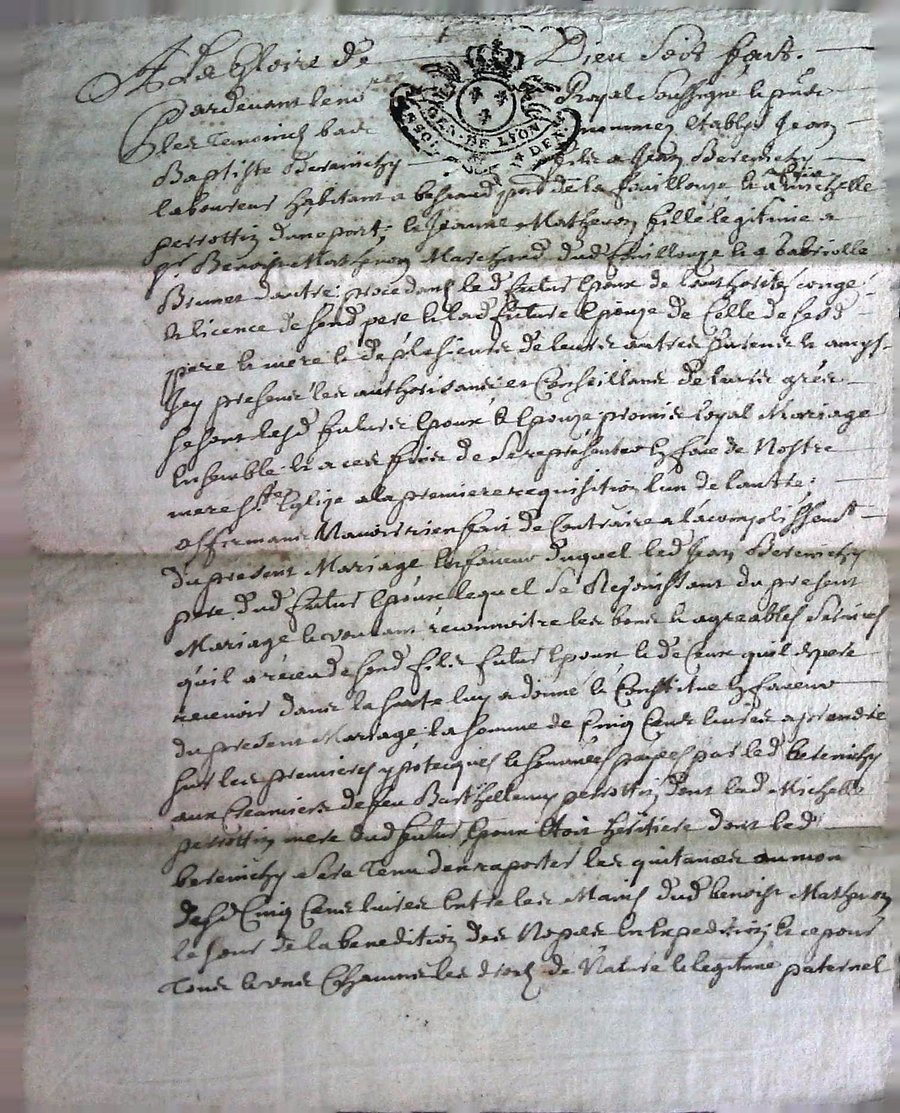 A La Gloire de Dieu Soit fait.
Pardevant le no^re Royal Soussigné le pnt
les Temoincts bas nommez Etablys Jean
GEN. DE LYON
SOLS DEN
Baptiste Berenichy fils a Jean Berenichy
laboureur habitant a behaud parr de la fouillouze & a michelle
perrottin dune part; & Jeanne Matheron fille legitime a
Sr Benoist Matheron Marchand dud fouillouze & a Gabrielle
Brunet dautre; procedant led futur Epoux de Lauthorité congé
& licence de sond pere & lad future Epouze de Celle de sesd
pere & mere & de plusieurs de leurs autres parens & amys
Icy presens les authorisans et Conseillans de leurs grés
se sont lesd futurs Epoux & Epouze promis loyal Mariage
Ensemble & a ces fins de se representer En face de Nostre
mere Ste Eglize a la premiere requisition lun de lautre;
affirmans Navoir rien fait de Contraire a lacomplissemt
du present Mariage En faveur duquel led Jean Berenichy
pere dud futur Epoux lequel se Rejouissant du present
Mariage & voulant reconnoitre les bons & agreables Services
quil a receu de sond fils futur Epoux & de Ceux quil espere
recevoir dans la suite luy a donné & Constitue En faveur
du present Mariage la somme de Cinq Cens livres a prendre
sur les premieres ypotecques & sommes payées par led berenichy
aux Creanciers de feu Barthellemy perrottin, dont lad Michelle
perrottin mere dud futur Epoux Etoit heritiere dont led
berenichy sera Tenu den raporter les quitances
desd Cinq Cens livres Entre les Mains dud benoist Matheron
le jour de la benediction des Nopces En Expedition & ce pour
Tous & uns Chacuns les droits de Nature & legitime paternel